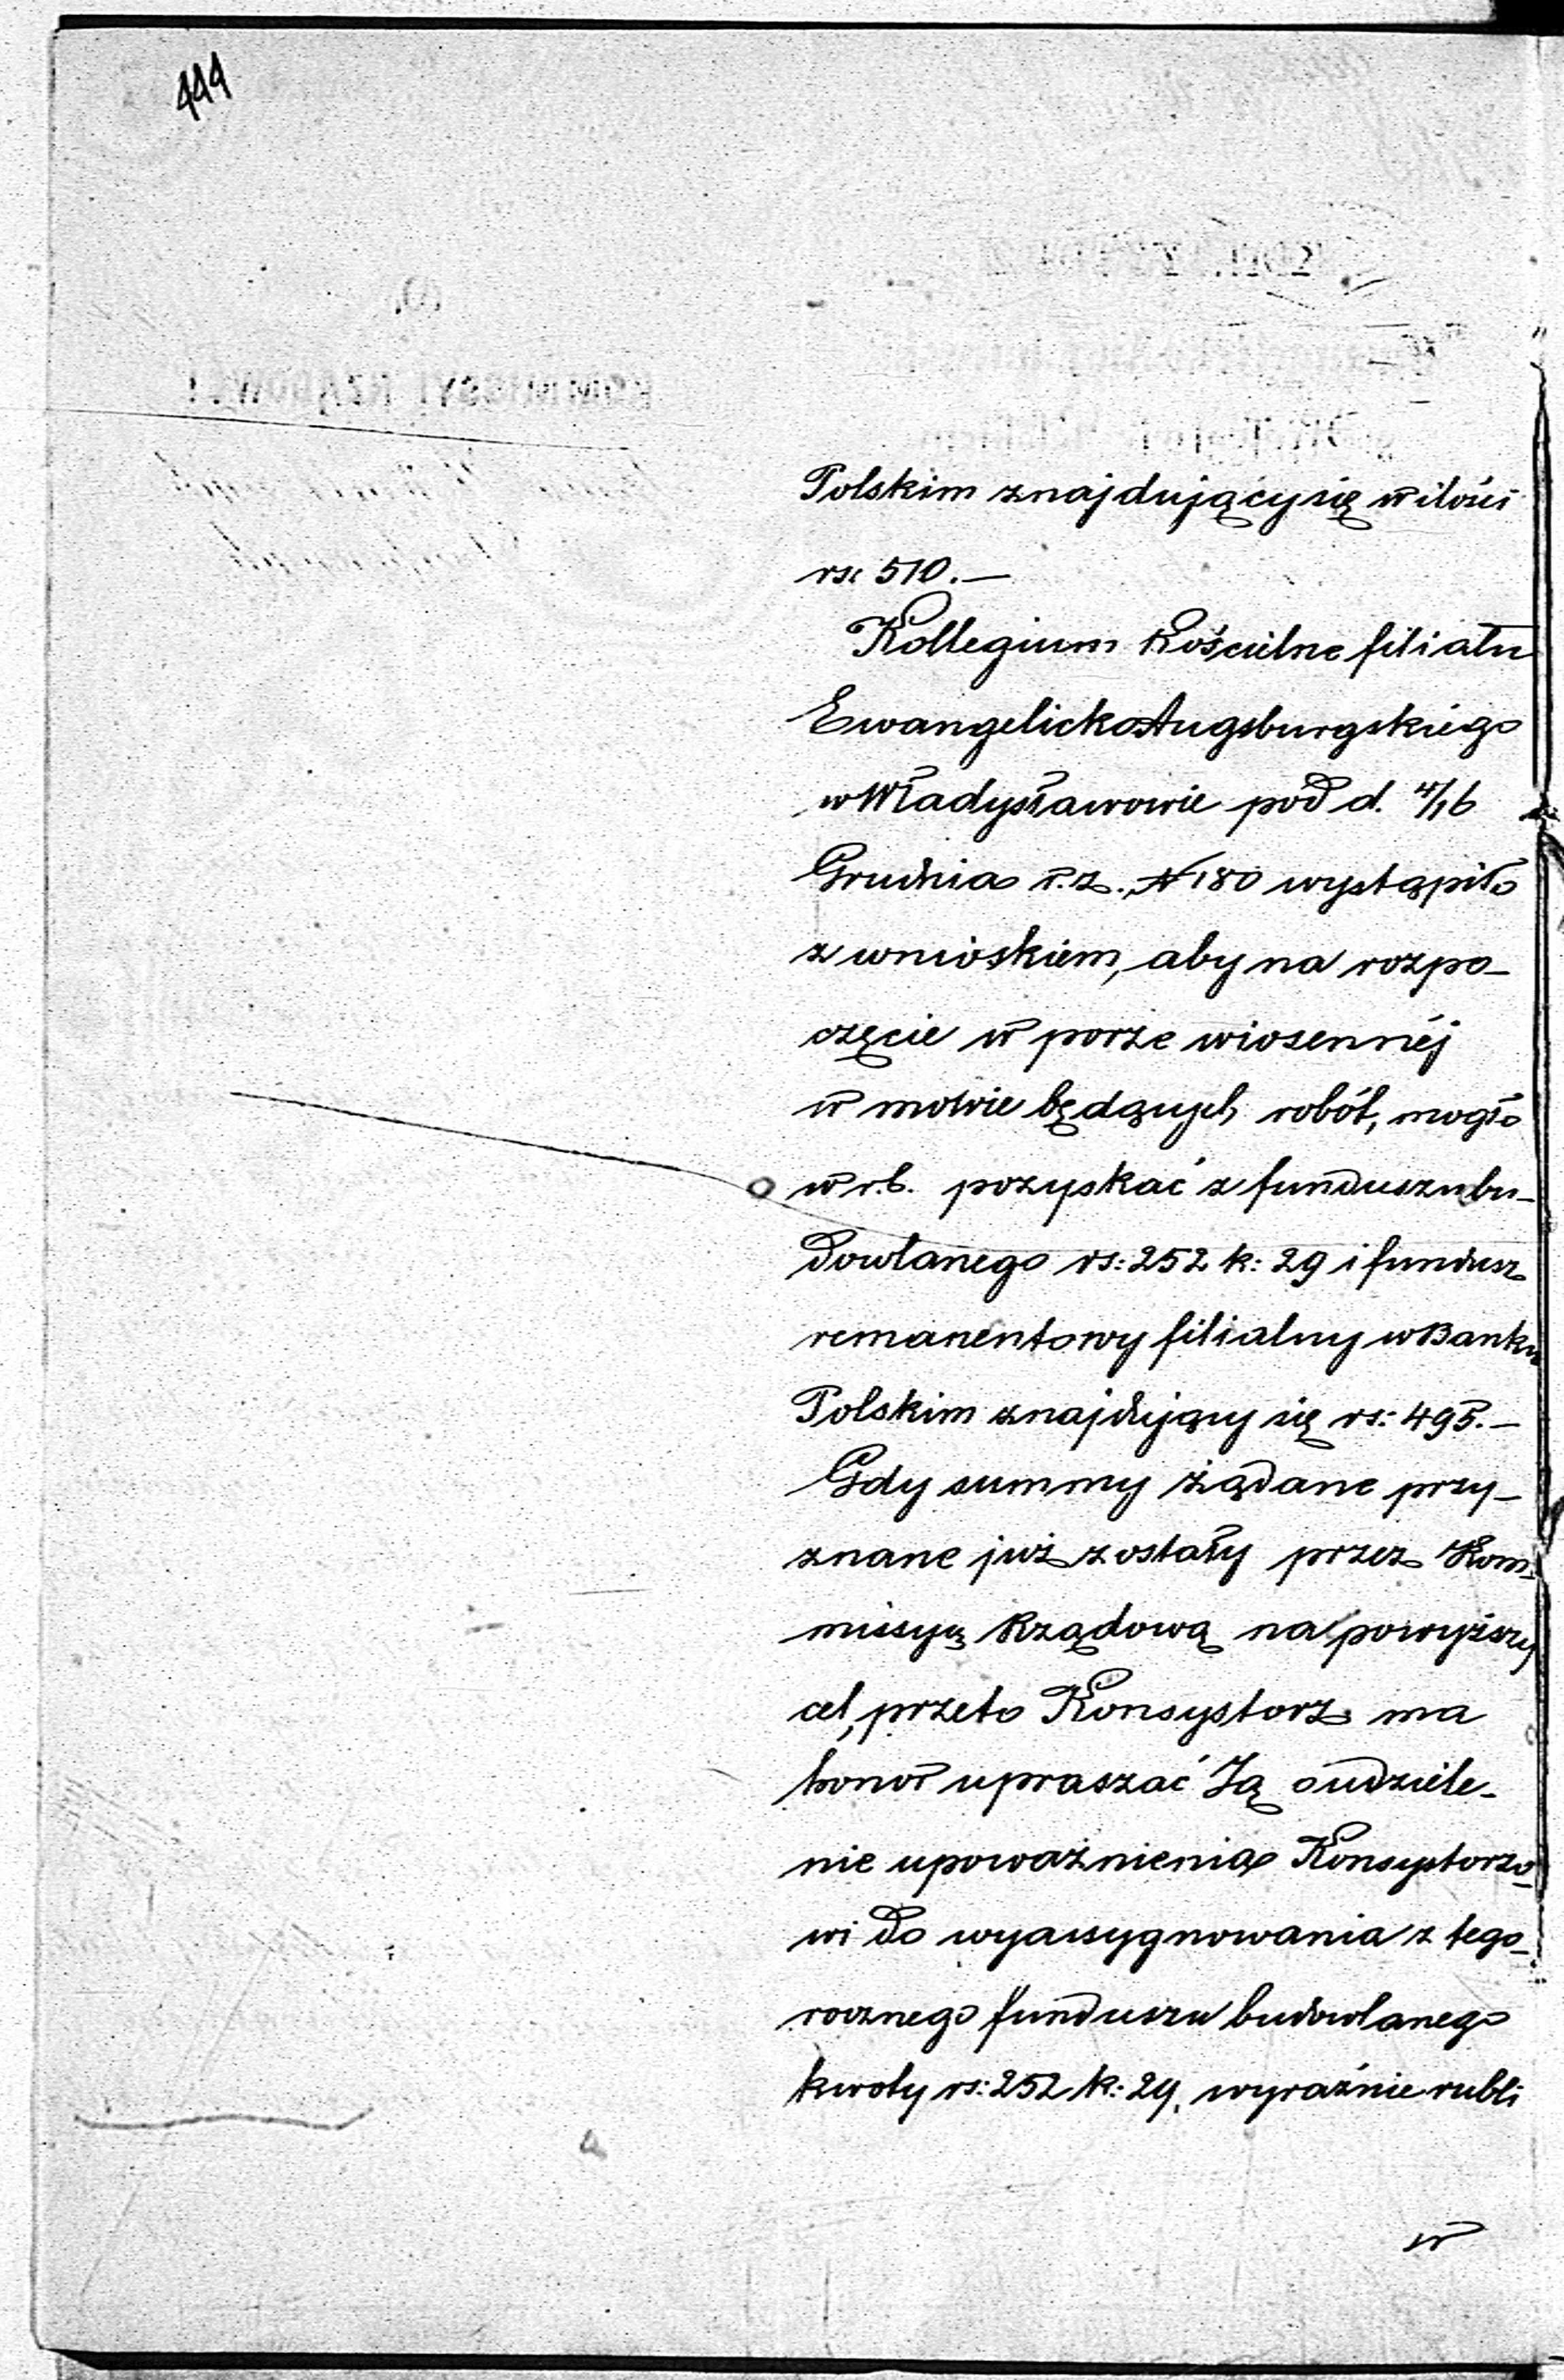 444
Polskim znajdujący się w ilości
rs: 510.—
Kollegium Kościelne filiału
Ewangelicko Augsburgskiego
w Władysławowie pod d. 4/16
Grudnia r. z., N 180 wystąpiło
z wnioskiem, aby na rozpo-
częcie w porze wiosennéj
w mowie będących robót, mogło
w r. b. pozyskać z funduszu bu-
dowlanego rs: 252 k: 29 i fundusz
remanentowy filialny w Banku
Polskim znajdujący się rs: 495.—
Gdy summy żądane przy-
znane już zostały przez Kom-
missyą Rządową na powyższy
cel, przeto Konsystorz ma
honor upraszać Ją o udziele-
nie upoważnienia Konsystorzo-
wi do wyassygnowania z tego-
rocznego funduszu budowlanego
kwoty rs: 252 k: 29, wyraźnie rubli
w